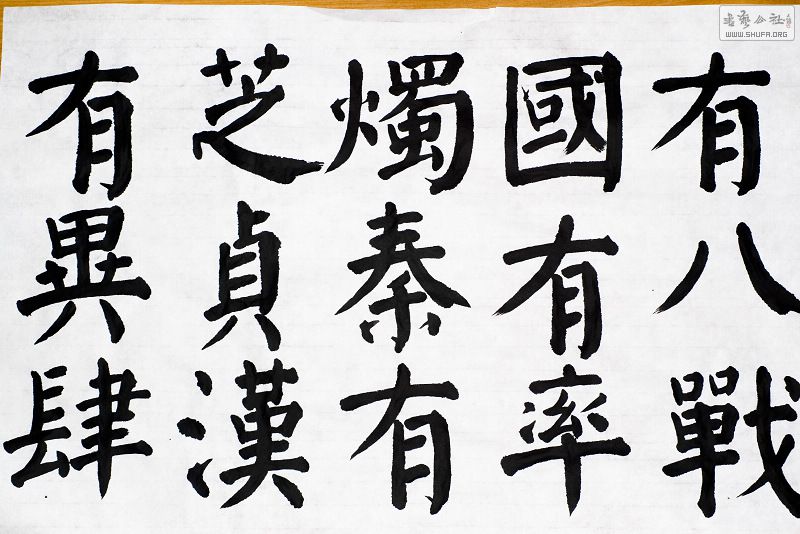 有八戰
國有率
燭秦有
芝貞漢
有異肆
书艺公社
WWW.SHUFA.ORG